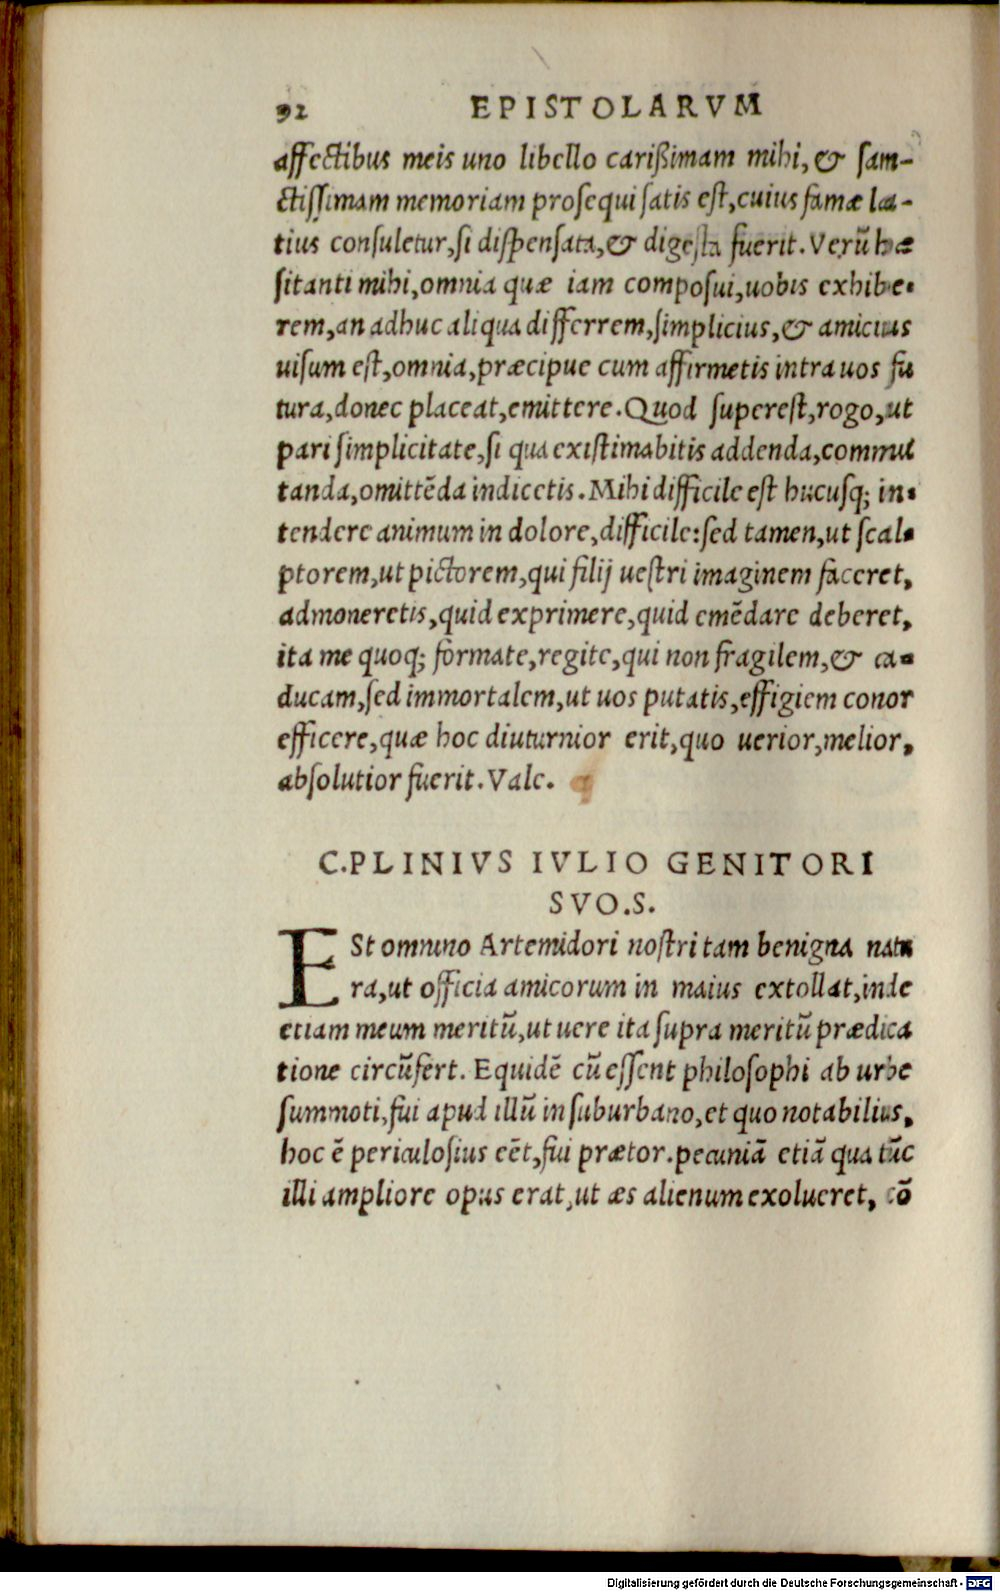 92 EPISTOLARVM
affectibus meis uno libello carißimam mihi, & san-
ctissimam memoriam prosequi satis est, cuius famæ la-
tius consuletur, si dispensata, & digesta fuerit. Verũ hæ
sitanti mihi, omnia quæ iam composui, uobis exhibe-
rem, an adhuc aliqua differrem, simplicius, & amicius
uisum est, omnia, præcipue cum affirmetis intra uos fu
tura, donec placeat, emittere. Quod superest, rogo, ut
pari simplicitate, si qua existimabitis addenda, commu
tanda, omittẽda indicetis. Mihi difficile est hucusq; in-
tendere animum in dolore, difficile: sed tamen, ut scal-
ptorem, ut pictorem, qui filij uestri imaginem faceret,
admoneretis, quid exprimere, quid emẽdare deberet,
ita me quoq; formate, regite, qui non fragilem, & ca-
ducam, sed immortalem, ut uos putatis, effigiem conor
efficere, quæ hoc diuturnior erit, quo uerior, melior,
absolutior fuerit. Vale.
C.PLINIVS IVLIO GENITORI
SVO.S.
ESt omnino Artemidori nostri tam benigna natu
ra, ut officia amicorum in maius extollat, inde
etiam meum meritũ, ut uere ita supra meritũ prædica
tione circũfert. Equidẽ cũ essent philosophi ab urbe
summoti, fui apud illũ in suburbano, et quo notabilius,
hoc ẽ periculosius eẽt, fui prætor. pecuniã etiã qua tũc
illi ampliore opus erat, ut æs alienum exolueret, cõ
Digitalisierung gefördert durch die Deutsche Forschungsgemeinschaft - DFG